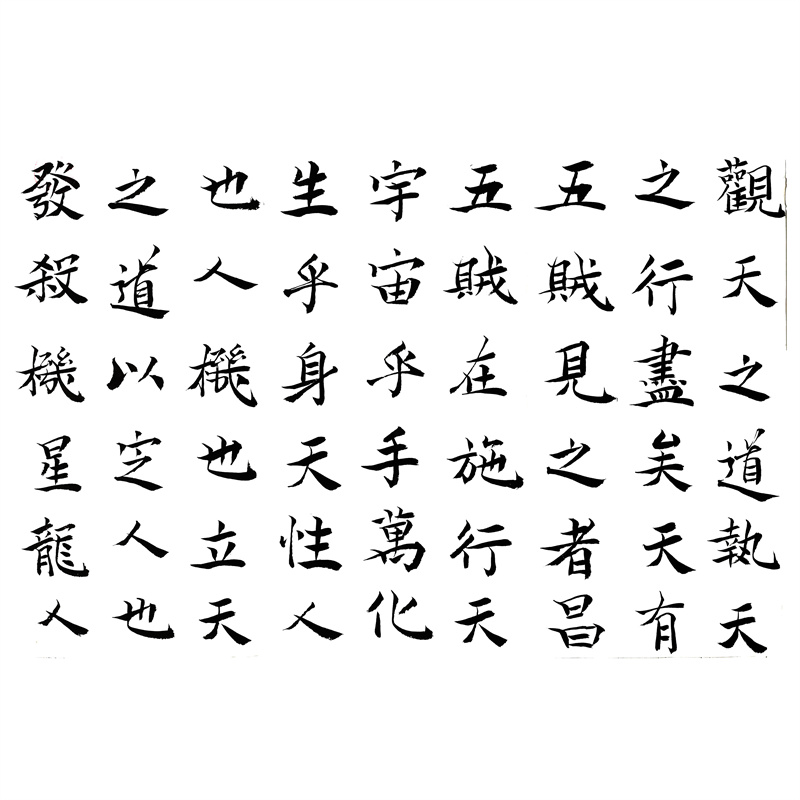 觀天之道執天
之行盡矣天有
五賊見之者昌
五賊在施行天
宇宙乎手萬化
生乎身天性人
也人機也立天
之道以㝎人也
發殺機星龍人